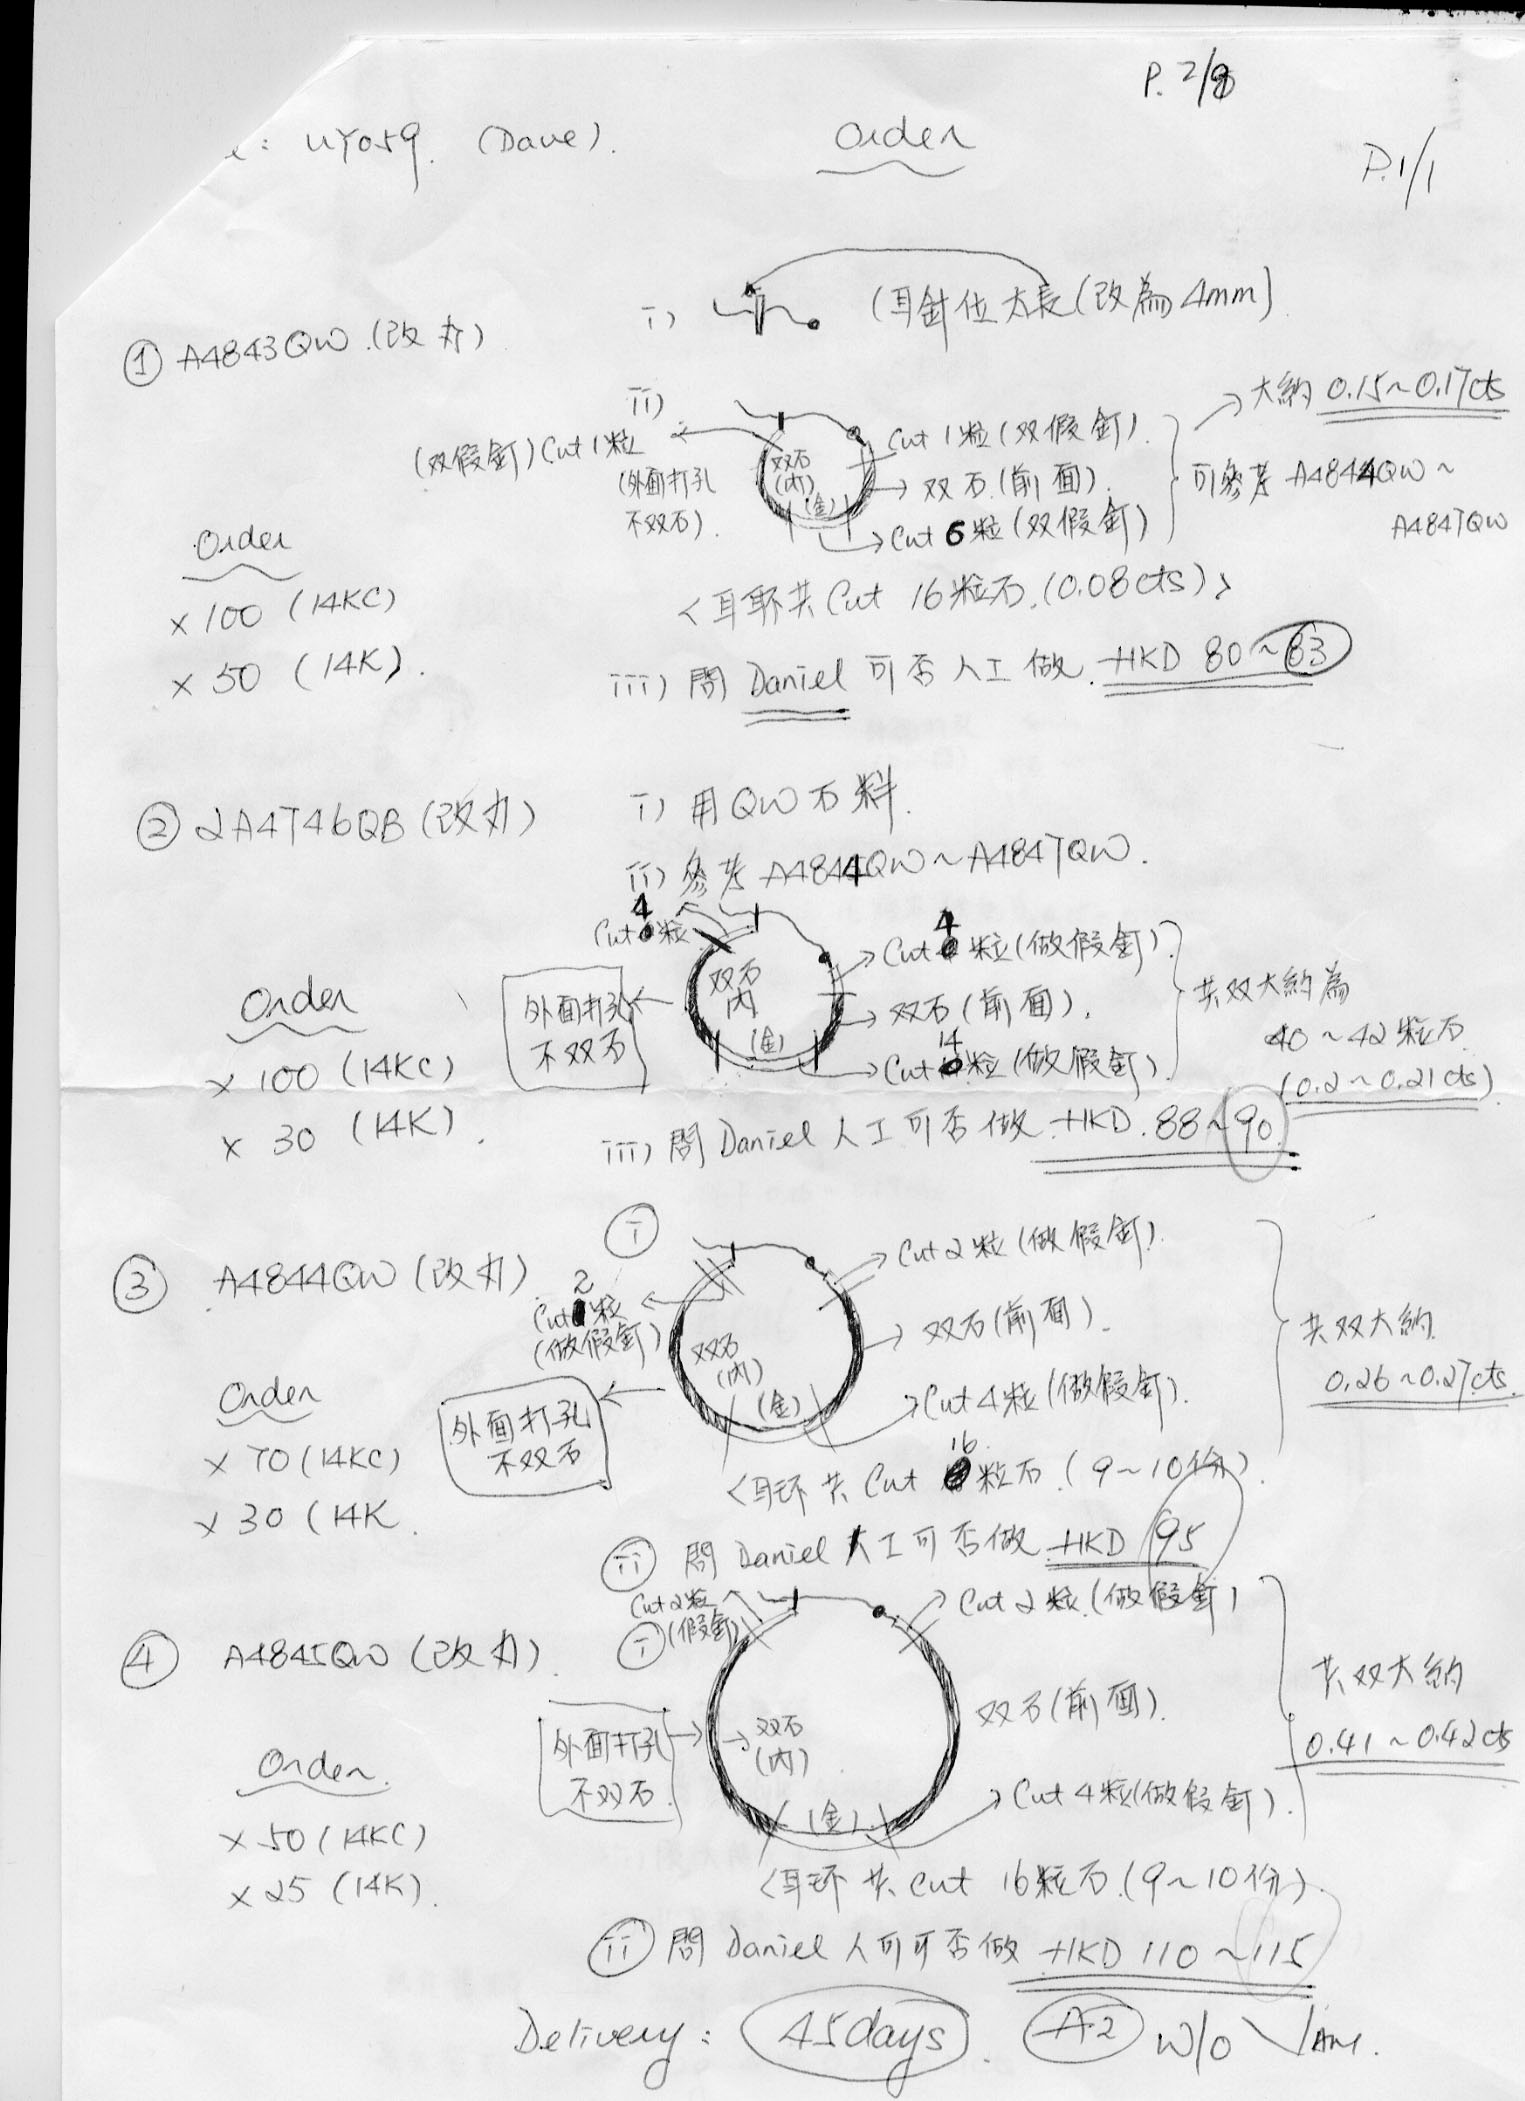 P. 2/8
: UY059. (Dave).
Order
P.1/1
① A4843QW (改方)
i) (耳針位太長(改為4mm)
ii)
(双假釘) Cut 1粒
(外面打孔
不双石).
双石
(内)
(金)
Cut 1粒 (双假釘).
双石 (前面).
Cut 6粒 (双假釘)
大約 0.15~0.17cts
可參考 A4844QW ~
A4847QW
<耳环共Cut 16粒石.(0.08cts)>
Order
x 100 (14KC)
x 50 (14K).
iii) 問 Daniel 可否人工做. HKD 80~83
② 2A4746QB (改方)
i) 用QW石料.
ii) 參考 A4844QW~A4847QW.
Cut 4粒
双石
内
(金)
外面打孔
不双石
Cut 4粒 (做假釘).
双石 (前面).
Cut 14粒 (做假釘).
共双大約為
40~42粒石
(0.2~0.21cts)
Order
x 100 (14KC)
x 30 (14K).
iii) 問 Daniel 人工可否做. HKD. 88~90.
③ A4844QW (改方)
i
Cut 2粒
(做假釘)
双石
(内)
(金)
外面打孔
不双石
Cut 2粒 (做假釘).
双石 (前面).
Cut 4粒 (做假釘).
共双大約
0.26~0.27cts.
<耳环共 Cut 16粒石.(9~10份).
Order
x 70 (14KC)
x 30 (14K
ii 問 Daniel 人工可否做 HKD 95
④ A4845QW (改方).
i
Cut 2粒
(假釘)
双石
(内)
(金)
外面打孔
不双石
Cut 2粒.(做假釘)
双石 (前面).
Cut 4粒(做假釘).
共双大約
0.41~0.42cts
<耳环共 Cut 16粒石.(9~10份).
Order.
x 50 (14KC)
x 25 (14K).
ii 問 Daniel 人可可否做 HKD 110~115
Delivery: 45days. A2 W/O